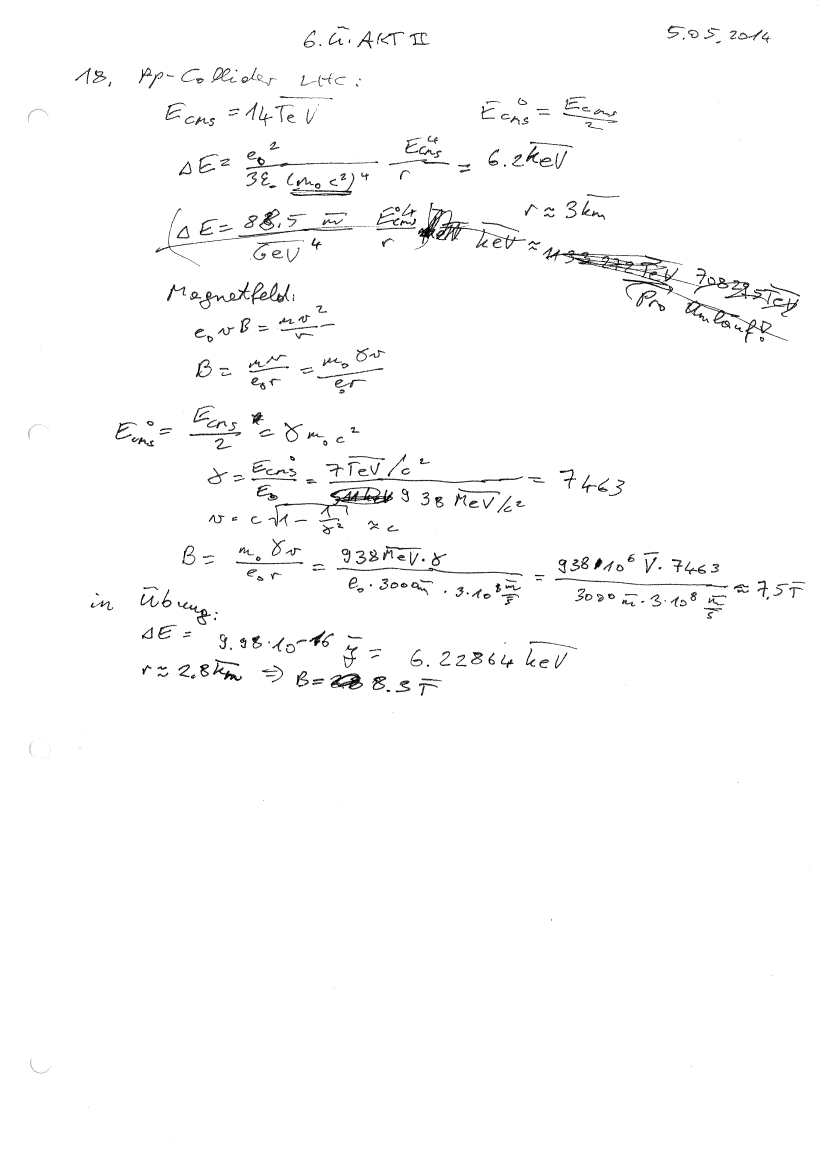 6. Ü. AKT II 5.05.2014
18. pp-Collider LHC:
E_cms = 14 TeV E°_cms = E_cms/2
ΔE = e₀²/(3ε₀ (m₀c²)⁴) E⁴_cms/r = 6.2 keV
r ≈ 3 km
(ΔE = 88.5 m/GeV⁴ E°⁴_cms/r keV ≈ 70829.5 TeV
Pro Umlauf!
Magnetfeld:
e₀vB = mv²/r
B = mv/(e₀r) = m₀γv/(e₀r)
E°_cms = E_cms/2 = γm₀c²
γ = E°_cms/E₀ = (7 TeV/c²)/(938 MeV/c²) = 7463
v = c√(1 - 1/γ²) ≈ c
B = m₀γv/(e₀r) = (938 MeV · γ)/(e₀ · 3000 m · 3·10⁸ m/s) = (938·10⁶ V · 7463)/(3000 m · 3·10⁸ m/s) ≈ 7,5 T
in Übung:
ΔE = 9.98·10⁻¹⁶ J = 6.22864 keV
r ≈ 2.8 km ⇒ B = 8.3 T